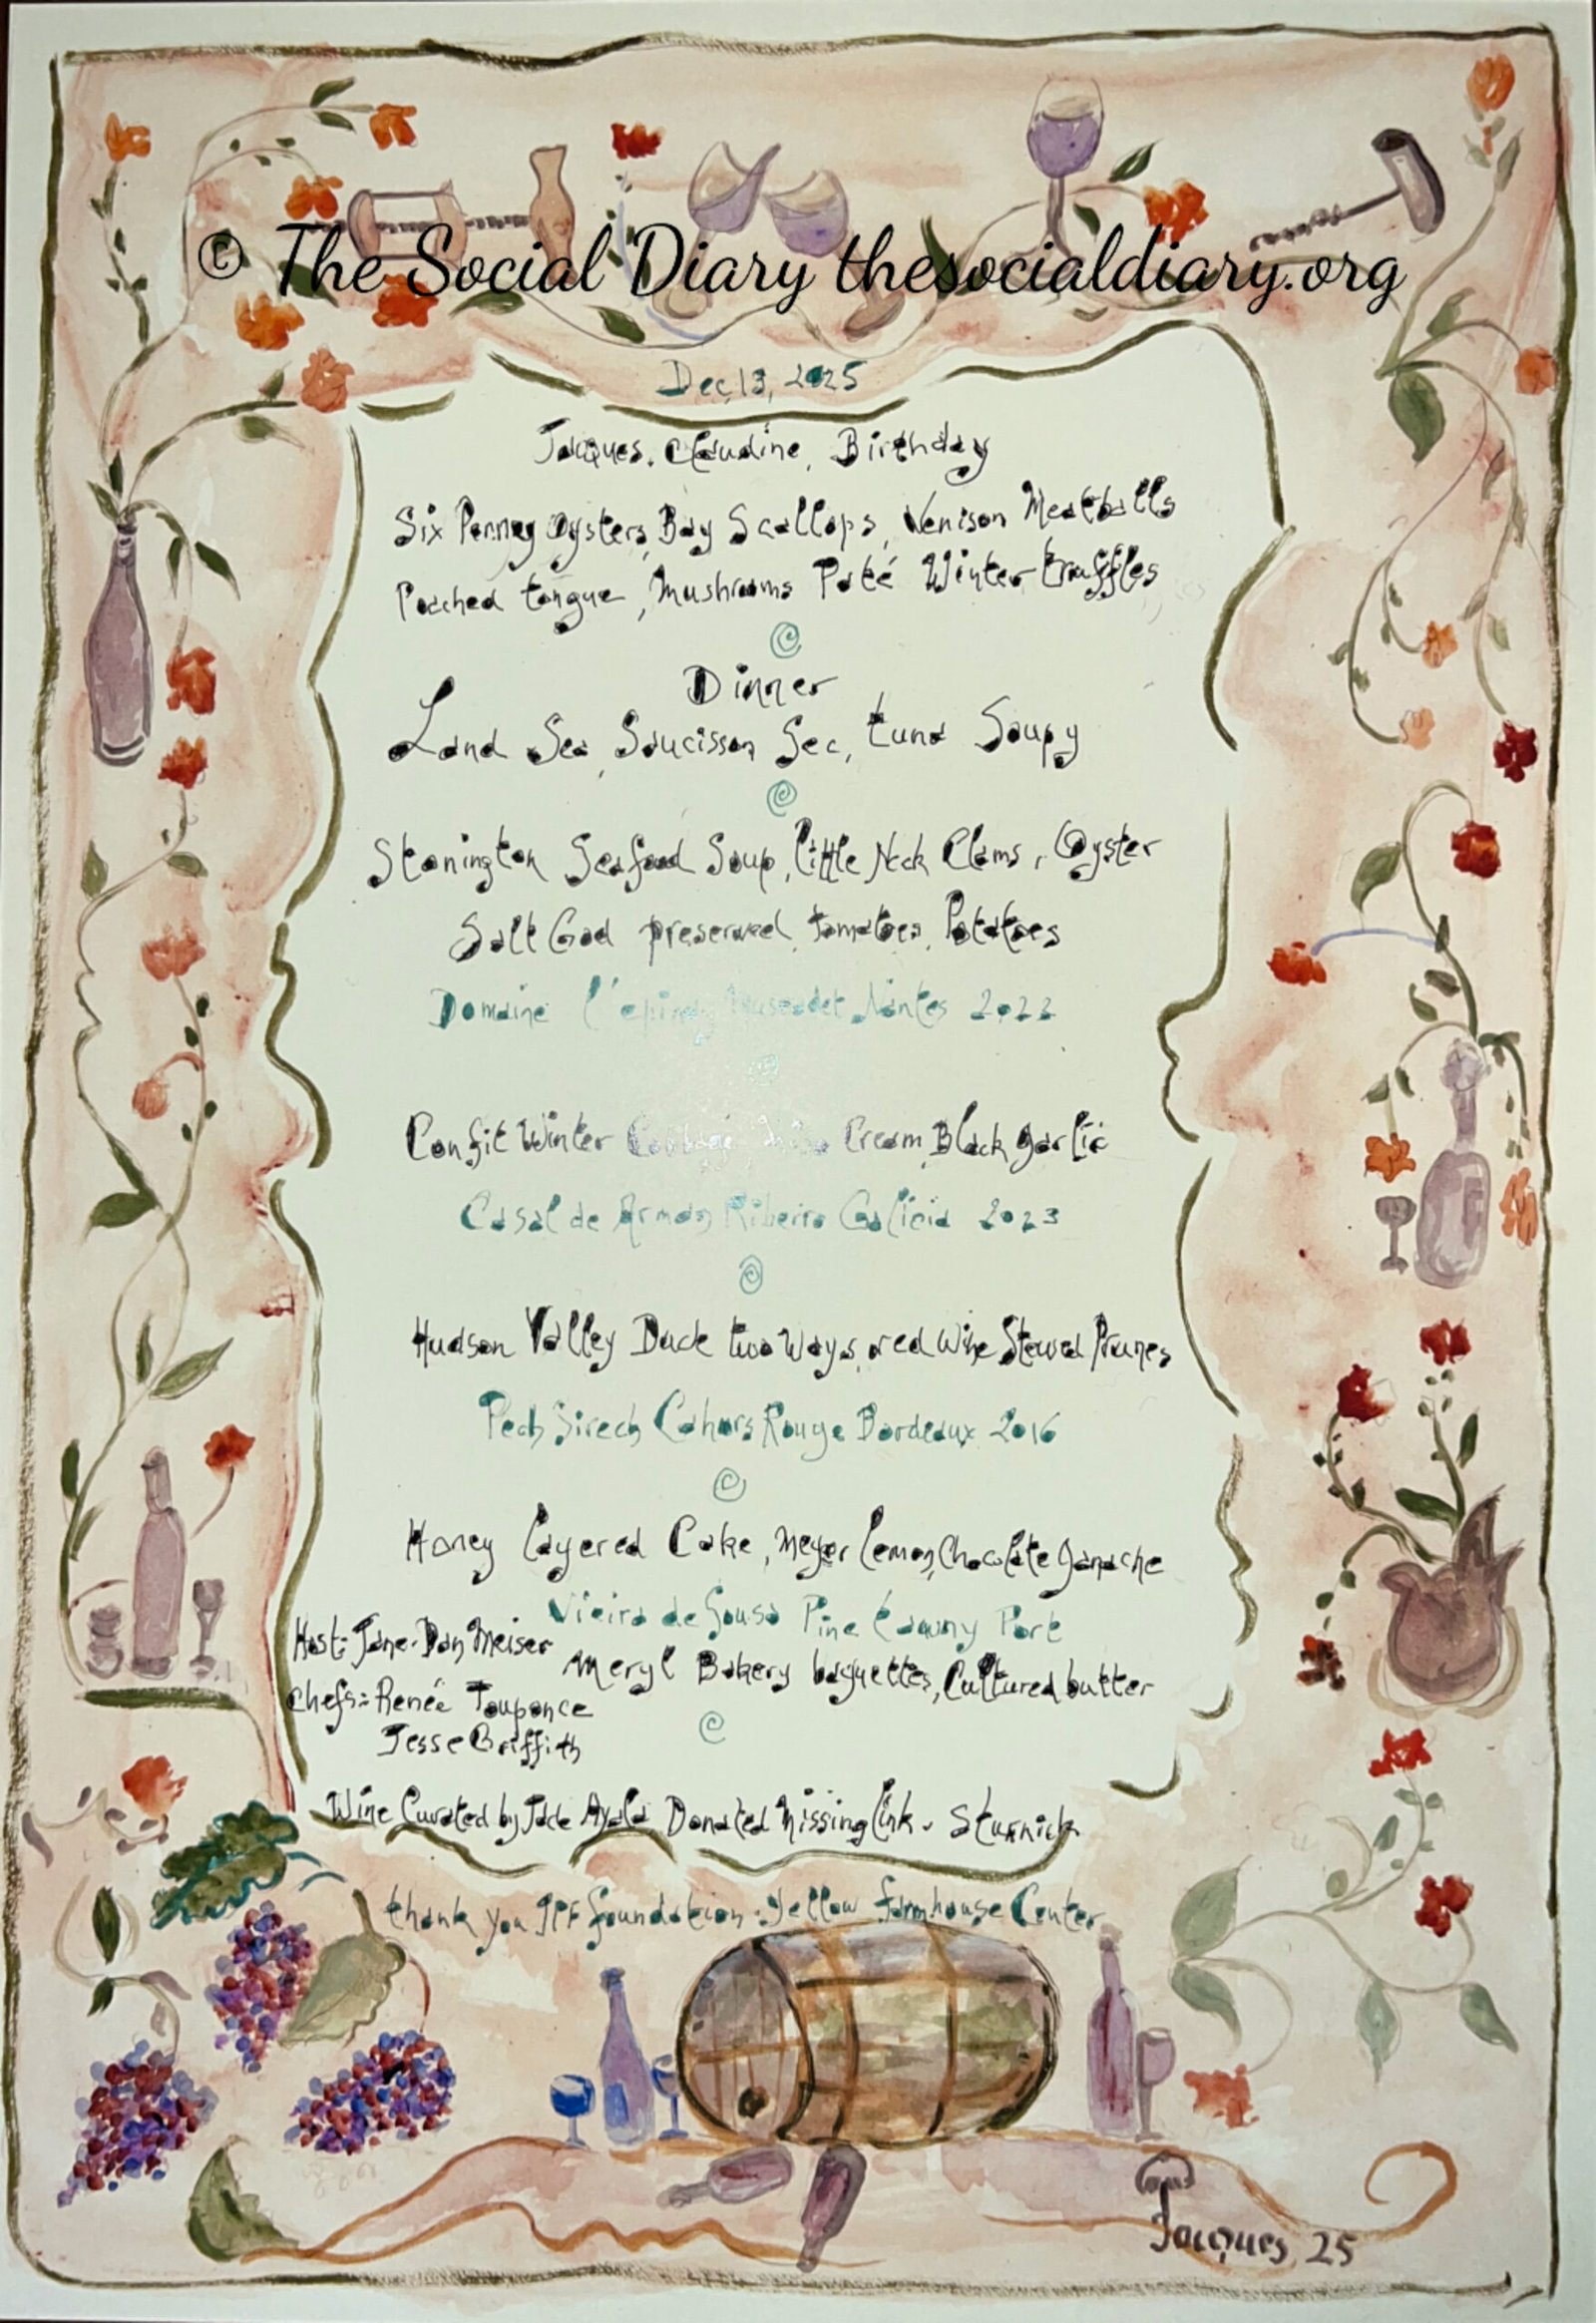 © The Social Diary thesocialdiary.org
Dec, 13, 2025
Jacques. Claudine, Birthday
Six Penney Oysters, Bay Scallops, Venison Meatballs
Poached tongue, Mushrooms Paté Winter truffles
Dinner
Land Sea, Saucisson Sec, tuna Soupy
Stonington Seafood Soup, little Neck Clams, Oyster
Salt God preserved tomatoes, Potatoes
Domaine l'épinay Muscadet Nantes 2022
Confit Winter Cabbage Cream, Black garlic
Casal de Arman Ribeiro Galicia 2023
Hudson Valley Duck two Ways, red Wine Stewed Prunes
Pech Sirech Cahors Rouge Bordeaux 2016
Honey layered Cake, Meyer lemon, Chocolate ganache
Vieira de Sousa Fine tawny Port
Host: Jane. Dan Meiser
Meryl Bakery baguettes, Cultured butter
Chefs: Renée Touponce
Jesse Griffith
Wine Curated by Jade Ayala Donated Missing link - Sturnick
thank you JPF foundation. Yellow farmhouse Center
Jacques 25